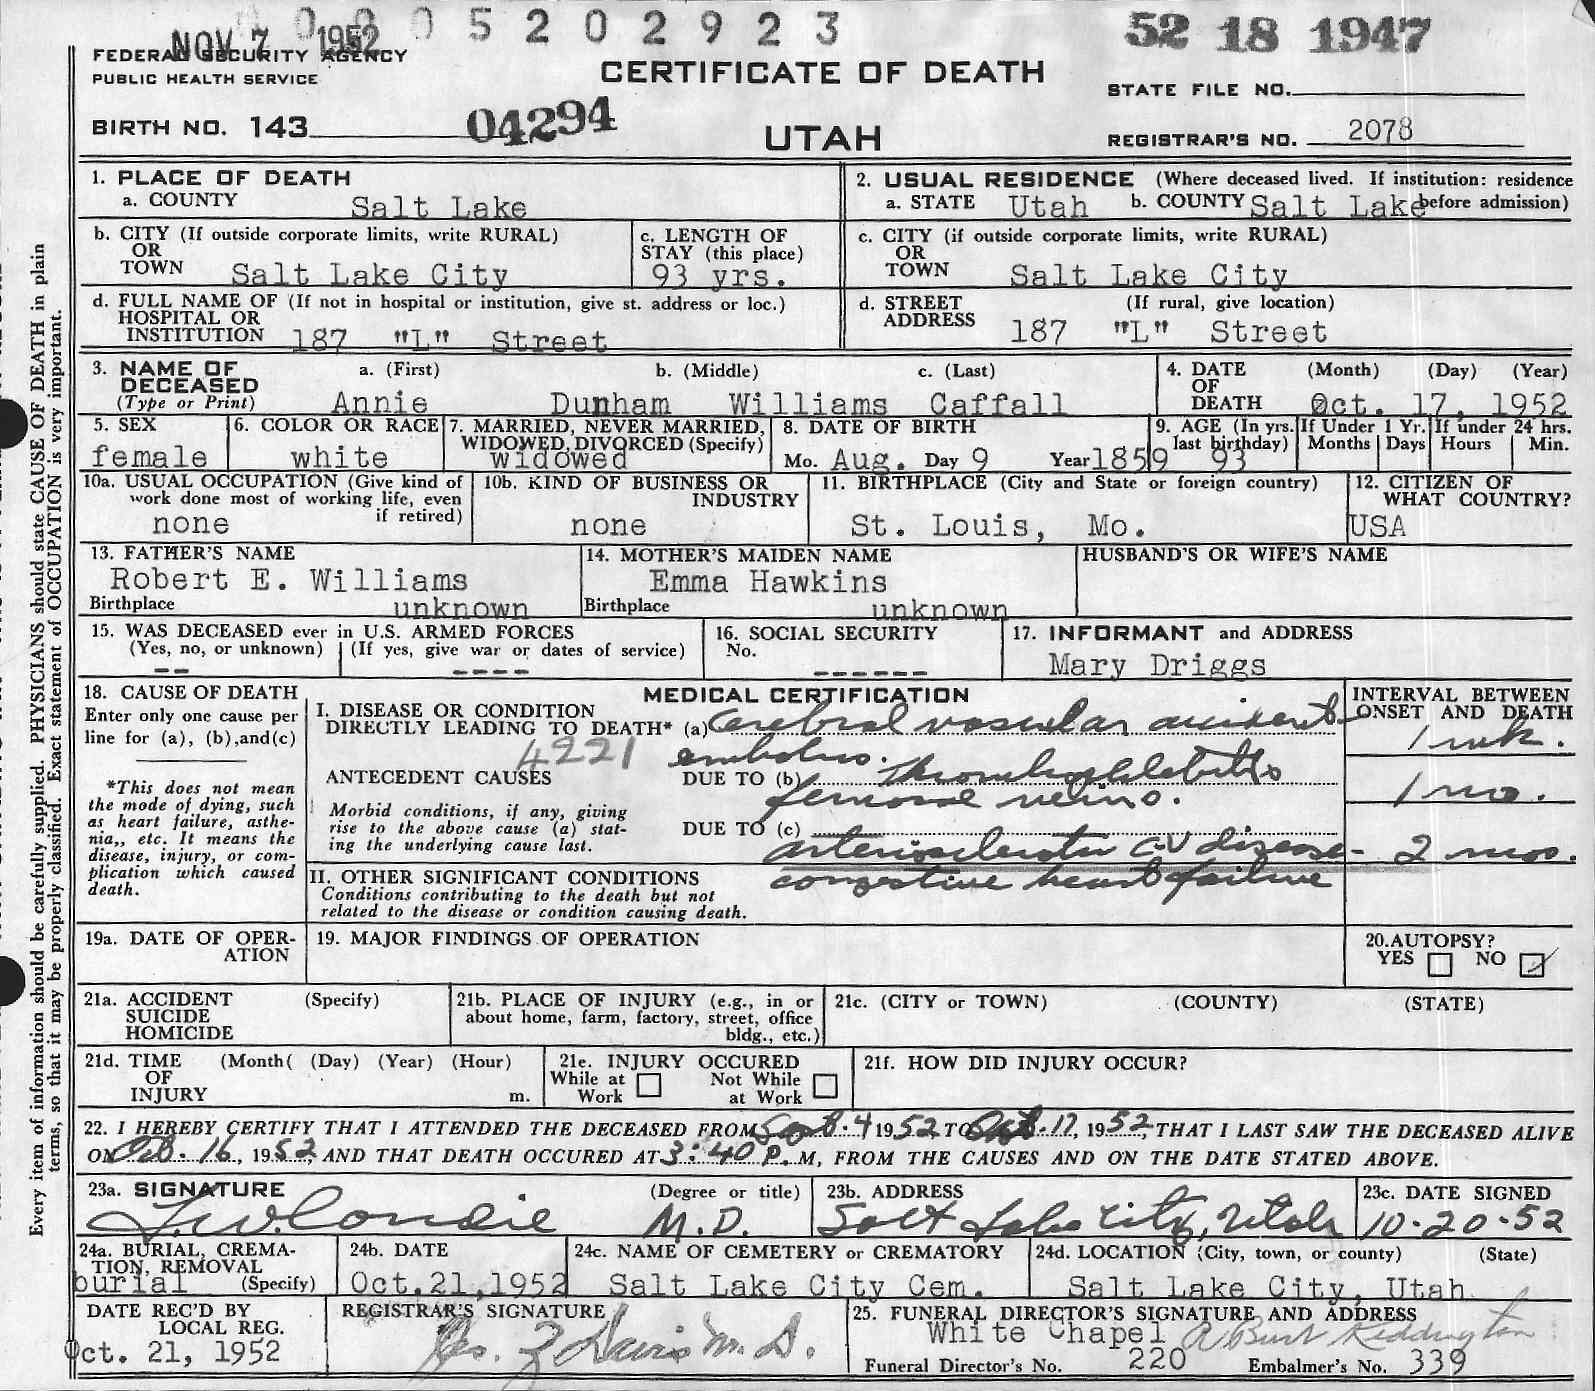 0 0 0 5 2 0 2 9 2 3
NOV 7 1952
52 18 1947
FEDERAL SECURITY AGENCY
PUBLIC HEALTH SERVICE
CERTIFICATE OF DEATH
STATE FILE NO.
BIRTH NO. 143 04294
UTAH
REGISTRAR'S NO. 2078
Every item of information should be carefully supplied. PHYSICIANS should state CAUSE OF DEATH in plain
terms, so that it may be properly classified. Exact statement of OCCUPATION is very important.
1. PLACE OF DEATH
a. COUNTY Salt Lake
2. USUAL RESIDENCE (Where deceased lived. If institution: residence
a. STATE Utah b. COUNTY Salt Lake before admission)
b. CITY (If outside corporate limits, write RURAL)
OR
TOWN Salt Lake City
c. LENGTH OF
STAY (this place)
93 yrs.
c. CITY (if outside corporate limits, write RURAL)
OR
TOWN Salt Lake City
d. FULL NAME OF (If not in hospital or institution, give st. address or loc.)
HOSPITAL OR
INSTITUTION 187 "L" Street
d. STREET (If rural, give location)
ADDRESS 187 "L" Street
3. NAME OF a. (First) b. (Middle) c. (Last)
DECEASED
(Type or Print) Annie Dunham Williams Caffall
4. DATE (Month) (Day) (Year)
OF
DEATH Oct. 17, 1952
5. SEX
female
6. COLOR OR RACE
white
7. MARRIED, NEVER MARRIED,
WIDOWED, DIVORCED (Specify)
widowed
8. DATE OF BIRTH
Mo. Aug. Day 9 Year 1859
9. AGE (In yrs.
last birthday)
93
If Under 1 Yr.
Months Days
If under 24 hrs.
Hours Min.
10a. USUAL OCCUPATION (Give kind of
work done most of working life, even
if retired)
none
10b. KIND OF BUSINESS OR
INDUSTRY
none
11. BIRTHPLACE (City and State or foreign country)
St. Louis, Mo.
12. CITIZEN OF
WHAT COUNTRY?
USA
13. FATHER'S NAME
Robert E. Williams
Birthplace unknown
14. MOTHER'S MAIDEN NAME
Emma Hawkins
Birthplace unknown
HUSBAND'S OR WIFE'S NAME
15. WAS DECEASED ever in U.S. ARMED FORCES
(Yes, no, or unknown) (If yes, give war or dates of service)
-- ----
16. SOCIAL SECURITY
No.
------
17. INFORMANT and ADDRESS
Mary Driggs
18. CAUSE OF DEATH
Enter only one cause per
line for (a), (b),and(c)
*This does not mean
the mode of dying, such
as heart failure, asthe-
nia,, etc. It means the
disease, injury, or com-
plication which caused
death.
MEDICAL CERTIFICATION
I. DISEASE OR CONDITION
DIRECTLY LEADING TO DEATH* (a) Cerebral vascular accident
4221 embolus.
ANTECEDENT CAUSES
DUE TO (b) Thrombophlebitis
femoral veins.
Morbid conditions, if any, giving
rise to the above cause (a) stat-
ing the underlying cause last.
DUE TO (c)
arteriosclerotic C-V disease-
II. OTHER SIGNIFICANT CONDITIONS congestive heart failure
Conditions contributing to the death but not
related to the disease or condition causing death.
INTERVAL BETWEEN
ONSET AND DEATH
1 wk.
1 mo.
2 mos.
19a. DATE OF OPER-
ATION
19. MAJOR FINDINGS OF OPERATION
20.AUTOPSY?
YES NO
21a. ACCIDENT (Specify)
SUICIDE
HOMICIDE
21b. PLACE OF INJURY (e.g., in or
about home, farm, factory, street, office
bldg., etc.)
21c. (CITY or TOWN) (COUNTY) (STATE)
21d. TIME (Month( (Day) (Year) (Hour)
OF
INJURY m.
21e. INJURY OCCURED
While at Not While
Work at Work
21f. HOW DID INJURY OCCUR?
22. I HEREBY CERTIFY THAT I ATTENDED THE DECEASED FROM Sept. 4 1952, TO Oct. 17, 1952, THAT I LAST SAW THE DECEASED ALIVE
ON Oct. 16, 1952, AND THAT DEATH OCCURED AT 3:40 P. M, FROM THE CAUSES AND ON THE DATE STATED ABOVE.
23a. SIGNATURE (Degree or title)
M.D.
23b. ADDRESS
Salt Lake City, Utah
23c. DATE SIGNED
10-20-52
24a. BURIAL, CREMA-
TION, REMOVAL
burial (Specify)
24b. DATE
Oct.21,1952
24c. NAME OF CEMETERY or CREMATORY
Salt Lake City Cem.
24d. LOCATION (City, town, or county) (State)
Salt Lake City, Utah
DATE REC'D BY
LOCAL REG.
Oct. 21, 1952
REGISTRAR'S SIGNATURE
Davis M. D.
25. FUNERAL DIRECTOR'S SIGNATURE AND ADDRESS
White Chapel A Burt Keddington
Funeral Director's No. 220 Embalmer's No. 339